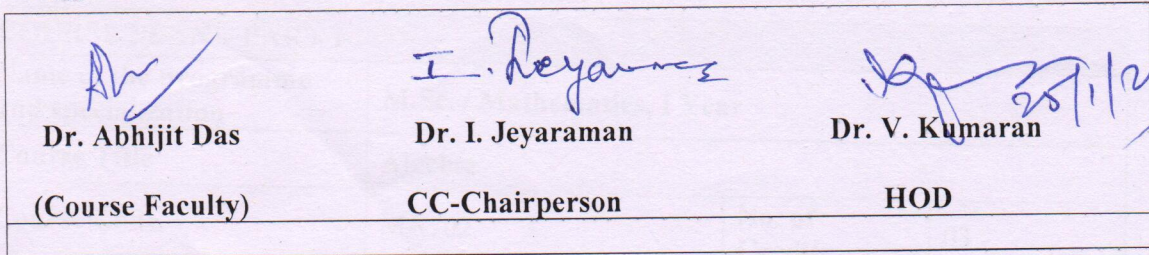 I. Jeyaraman
Dr. Abhijit Das Dr. I. Jeyaraman Dr. V. Kumaran
(Course Faculty) CC-Chairperson HOD